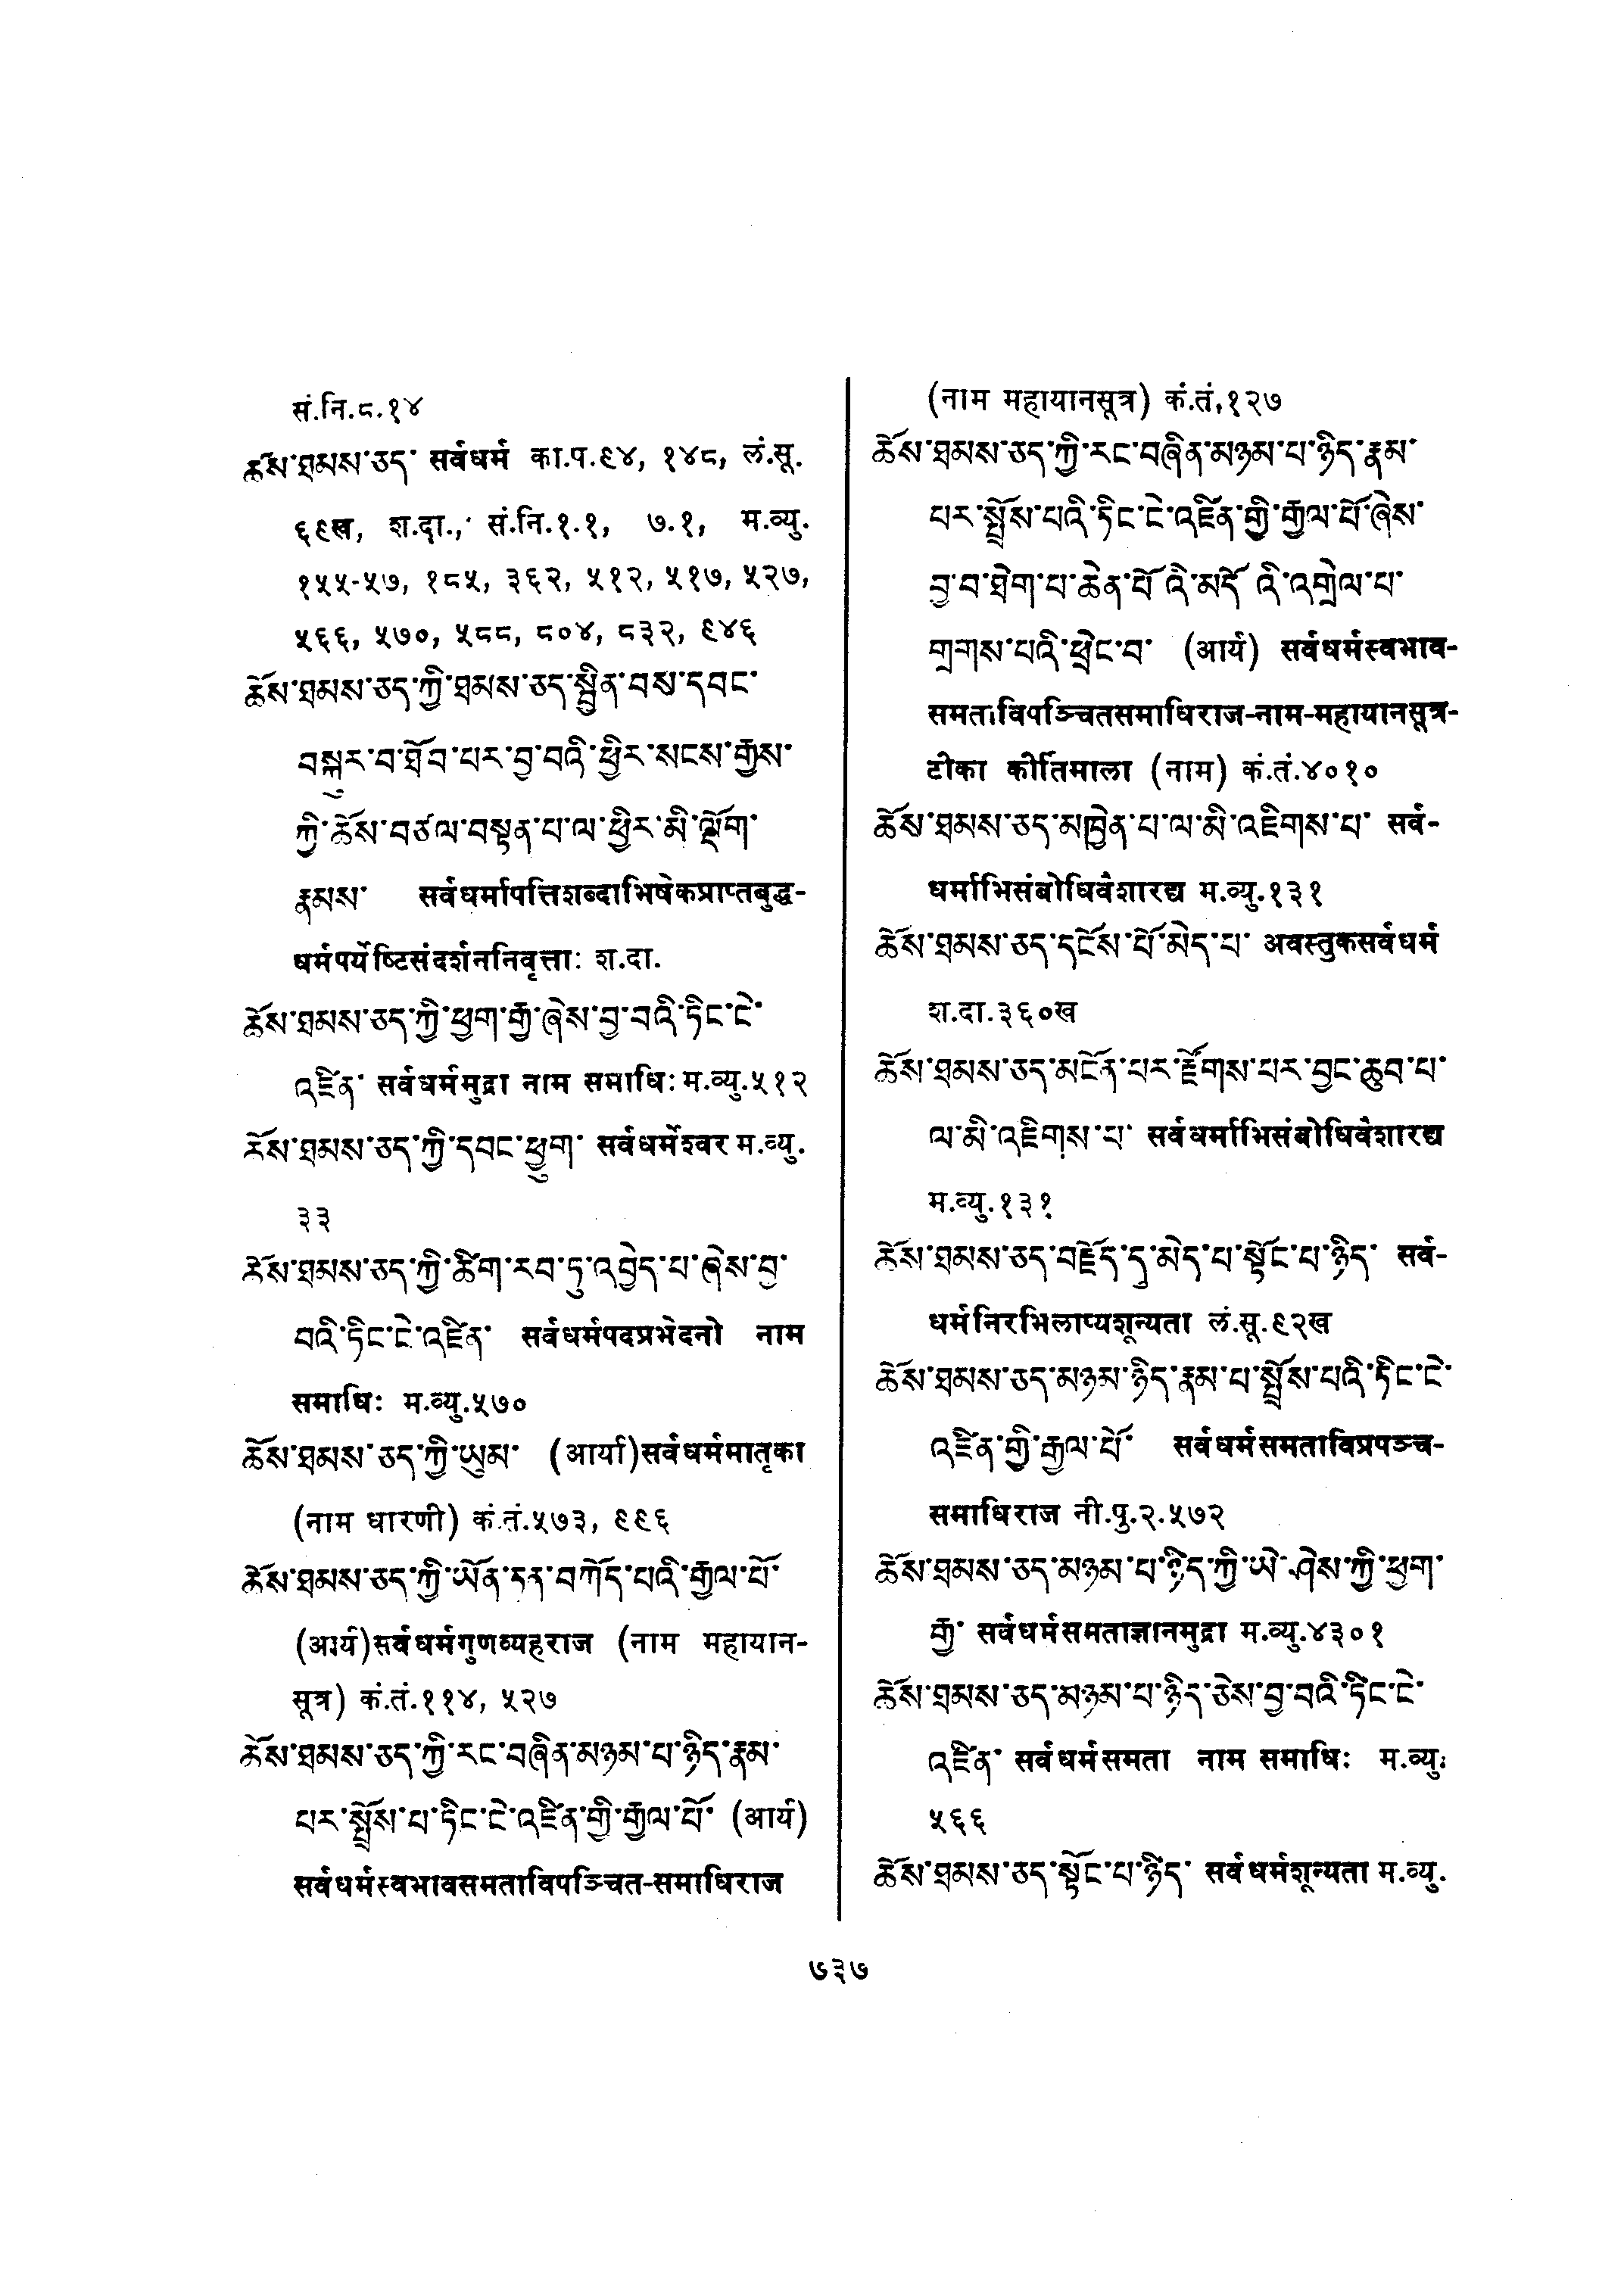 सं.नि.८.१४
ཆོས་ཐམས་ཅད་ सर्वधर्म का.प.९४, १४८, लं.सू.
६९ख, श.दा., सं.नि.१.१, ७.१, म.व्यु.
१५५-५७, १८५, ३६२, ५१२, ५१७, ५२७,
५६६, ५७०, ५८८, ८०४, ८३२, ९४६
ཆོས་ཐམས་ཅད་ཀྱི་ཐམས་ཅད་སྦྱིན་བས་དབང་
བསྐུར་བ་ཐོབ་པར་བྱ་བའི་ཕྱིར་སངས་རྒྱས་
ཀྱི་ཆོས་བཙལ་བསྟན་པ་ལ་ཕྱིར་མི་ལྡོག་
རྣམས་ सर्वधर्मापत्तिशब्दाभिषेकप्राप्तबुद्ध-
धर्मपर्येष्टिसंदर्शननिवृत्ताः श.दा.
ཆོས་ཐམས་ཅད་ཀྱི་ཕྱག་རྒྱ་ཞེས་བྱ་བའི་ཏིང་ངེ་
འཛིན་ सर्वधर्ममुद्रा नाम समाधिः म.व्यु.५१२
ཆོས་ཐམས་ཅད་ཀྱི་དབང་ཕྱུག་ सर्वधर्मेश्वर म.व्यु.
३३
ཆོས་ཐམས་ཅད་ཀྱི་ཚིག་རབ་ཏུ་འབྱེད་པ་ཞེས་བྱ་
བའི་ཏིང་ངེ་འཛིན་ सर्वधर्मपदप्रभेदनो नाम
समाधिः म.व्यु.५७०
ཆོས་ཐམས་ཅད་ཀྱི་ཡུམ་ (आर्या)सर्वधर्ममातृका
(नाम धारणी) कं.तं.५७३, ९९६
ཆོས་ཐམས་ཅད་ཀྱི་ཡོན་ཏན་བཀོད་པའི་རྒྱལ་པོ་
(आर्य)सर्वधर्मगुणव्यहराज (नाम महायान-
सूत्र) कं.तं.११४, ५२७
ཆོས་ཐམས་ཅད་ཀྱི་རང་བཞིན་མཉམ་པ་ཉིད་རྣམ་
པར་སྤྲོས་པ་ཏིང་ངེ་འཛིན་གྱི་རྒྱལ་པོ་ (आर्य)
सर्वधर्मस्वभावसमताविपञ्चित-समाधिराज
(नाम महायानसूत्र) कं.तं.१२७
ཆོས་ཐམས་ཅད་ཀྱི་རང་བཞིན་མཉམ་པ་ཉིད་རྣམ་
པར་སྤྲོས་པའི་ཏིང་ངེ་འཛིན་གྱི་རྒྱལ་པོ་ཞེས་
བྱ་བ་ཐེག་པ་ཆེན་པོ འི་མདོ འི་འགྲེལ་པ་
གྲགས་པའི་ཕྲེང་བ་ (आर्य) सर्वधर्मस्वभाव-
समताविपञ्चितसमाधिराज-नाम-महायानसूत्र-
टीका कीर्तिमाला (नाम) कं.तं.४०१०
ཆོས་ཐམས་ཅད་མཁྱེན་པ་ལ་མི་འཇིགས་པ་ सर्व-
धर्माभिसंबोधिवैशारद्य म.व्यु.१३१
ཆོས་ཐམས་ཅད་དངོས་པོ་མེད་པ་ अवस्तुकसर्वधर्म
श.दा.३६०ख
ཆོས་ཐམས་ཅད་མངོན་པར་རྫོགས་པར་བྱང་ཆུབ་པ་
ལ་མི་འཇིགས་པ་ सर्वधर्माभिसंबोधिवैशारद्य
म.व्यु.१३१
ཆོས་ཐམས་ཅད་བརྗོད་དུ་མེད་པ་སྟོང་པ་ཉིད་ सर्व-
धर्मनिरभिलाप्यशून्यता लं.सू.९२ख
ཆོས་ཐམས་ཅད་མཉམ་ཉིད་རྣམ་པ་སྤྲོས་པའི་ཏིང་ངེ་
འཛིན་གྱི་རྒྱལ་པོ་ सर्वधर्मसमताविप्रपञ्च-
समाधिराज नी.पु.२.५७२
ཆོས་ཐམས་ཅད་མཉམ་པ་ཉིད་ཀྱི་ཡེ་ཤེས་ཀྱི་ཕྱག་
རྒྱ་ सर्वधर्मसमताज्ञानमुद्रा म.व्यु.४३०१
ཆོས་ཐམས་ཅད་མཉམ་པ་ཉིད་ཅེས་བྱ་བའི་ཏིང་ངེ་
འཛིན་ सर्वधर्मसमता नाम समाधिः म.व्यु.
५६६
ཆོས་ཐམས་ཅད་སྟོང་པ་ཉིད་ सर्वधर्मशून्यता म.व्यु.
७३७